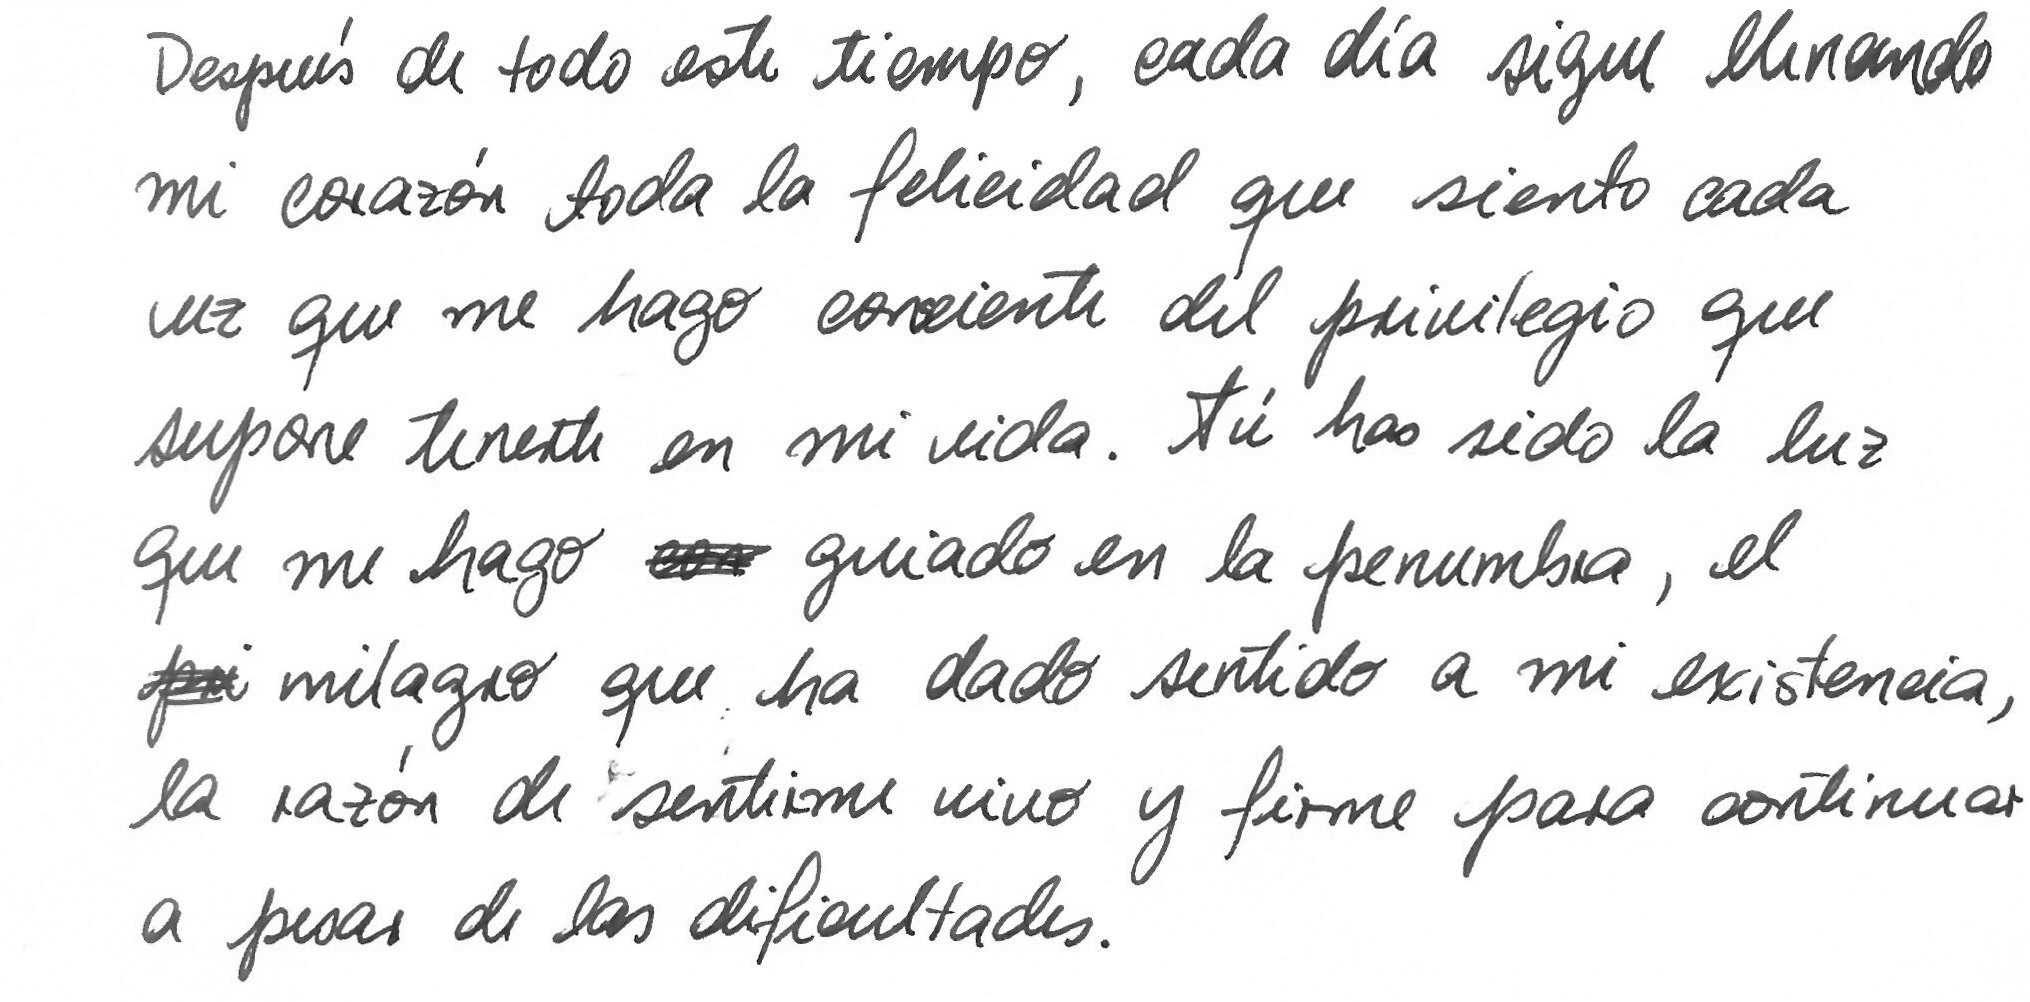 Después de todo este tiempo, cada día sigue llenando
mi corazón toda la felicidad que siento cada
vez que me hago consciente del privilegio que
supone tenerte en mi vida. Tú has sido la luz
que me hago guiado en la penumbra, el
milagro que ha dado sentido a mi existencia,
la razón de sentirme vivo y firme para continuar
a pesar de las dificultades.